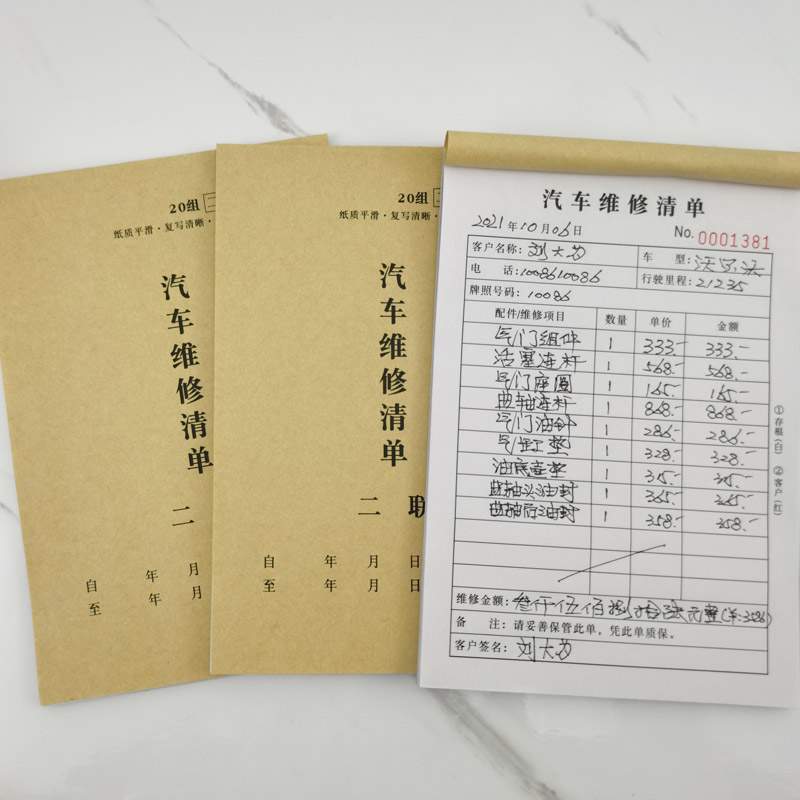 20组
纸质平滑·复写清晰·
汽车维修清单
二
自 年 月
至 年 月
20组
纸质平滑·复写清晰·
汽车维修清单
二 联
自 年 月 日
至 年 月 日
汽车维修清单
2021年10月06日 No. 0001381
客户名称: 刘大为 车 型: 沃尔沃
电 话: 1008610086 行驶里程: 21235
牌照号码: 10086
配件/维修项目 数量 单价 金额
气门组件 1 333.- 333.-
活塞连杆 1 568.- 568.-
气门座圈 1 165.- 165.-
曲轴连杆 1 868.- 868.-
气门油封 1 286.- 286.-
气缸垫 1 328.- 328.-
油底壳垫 1 315.- 315.-
曲轴头油封 1 365.- 365.-
曲轴后油封 1 358.- 358.-
维修金额: 叁仟伍佰捌拾陆元整(羊:3586)
备 注: 请妥善保管此单,凭此单质保。
客户签名: 刘大为
①存根(白) ②客户(红)